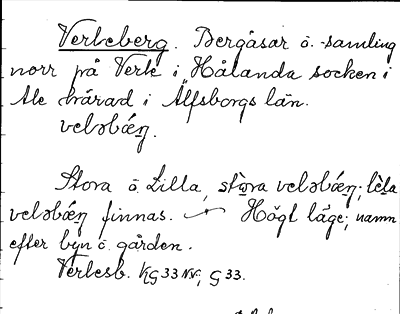 Verleberg. Bergåsar o. samling
norr på Verle i Hålanda socken i
Ale härad i Älfsborgs län.
veləbǽŋ.
Stora o. Lilla, stɷra veləbǽŋ; lɛ̀la
veləbǽŋ finnas. Högt läge; namn
efter byn o. gården.
Verlesb. KG 33 NV, G 33.